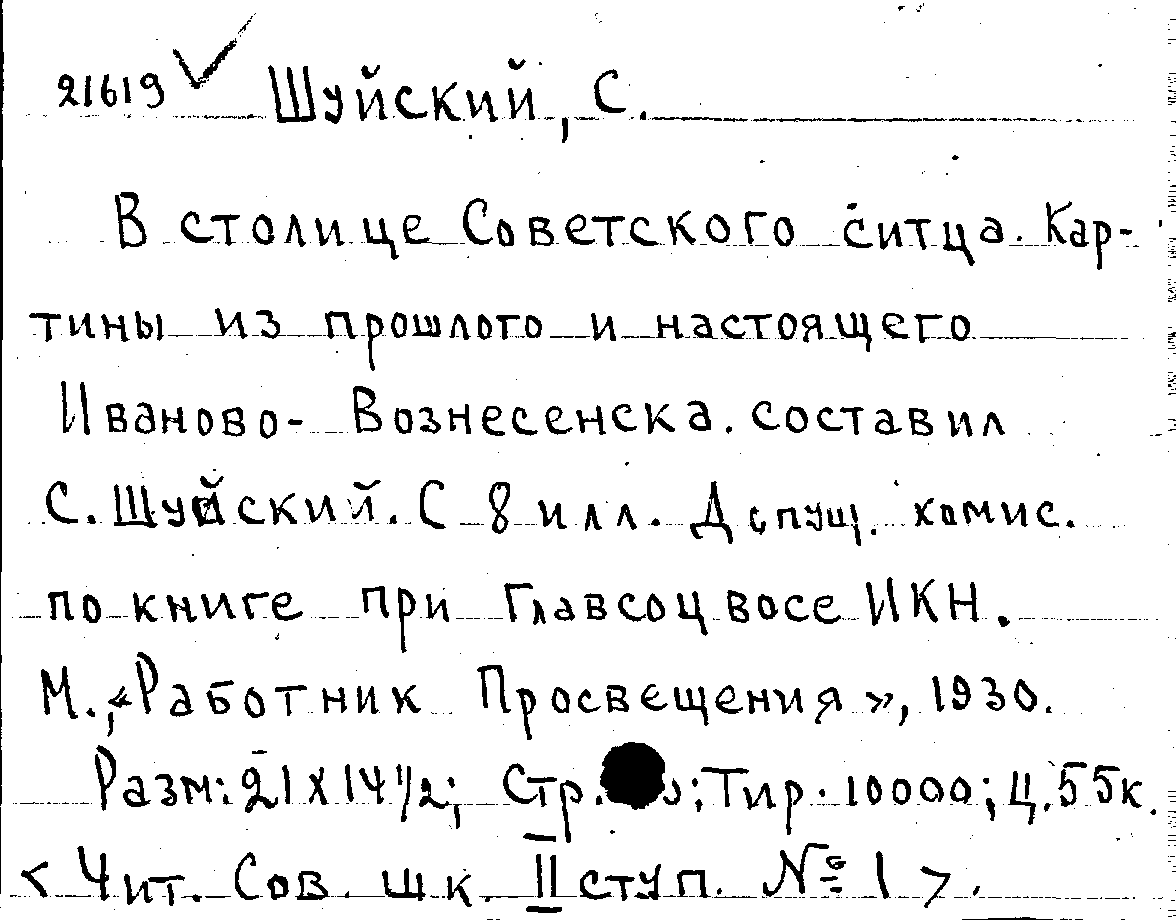 21619 Шуйский, С.
В столице Советского ситца. Кар-
тины из прошлого и настоящего
Иваново-Вознесенска. составил
С. Шуйский. С 8 илл. Допущ. комис.
по книге при Главсоцвосе ИКН.
М., «Работник Просвещения», 1930.
Разм: 21X14 1/2; Стр. ; Тир. 10000; Ц. 55к.
<Чит. Сов. шк. II ступ. № 1>.